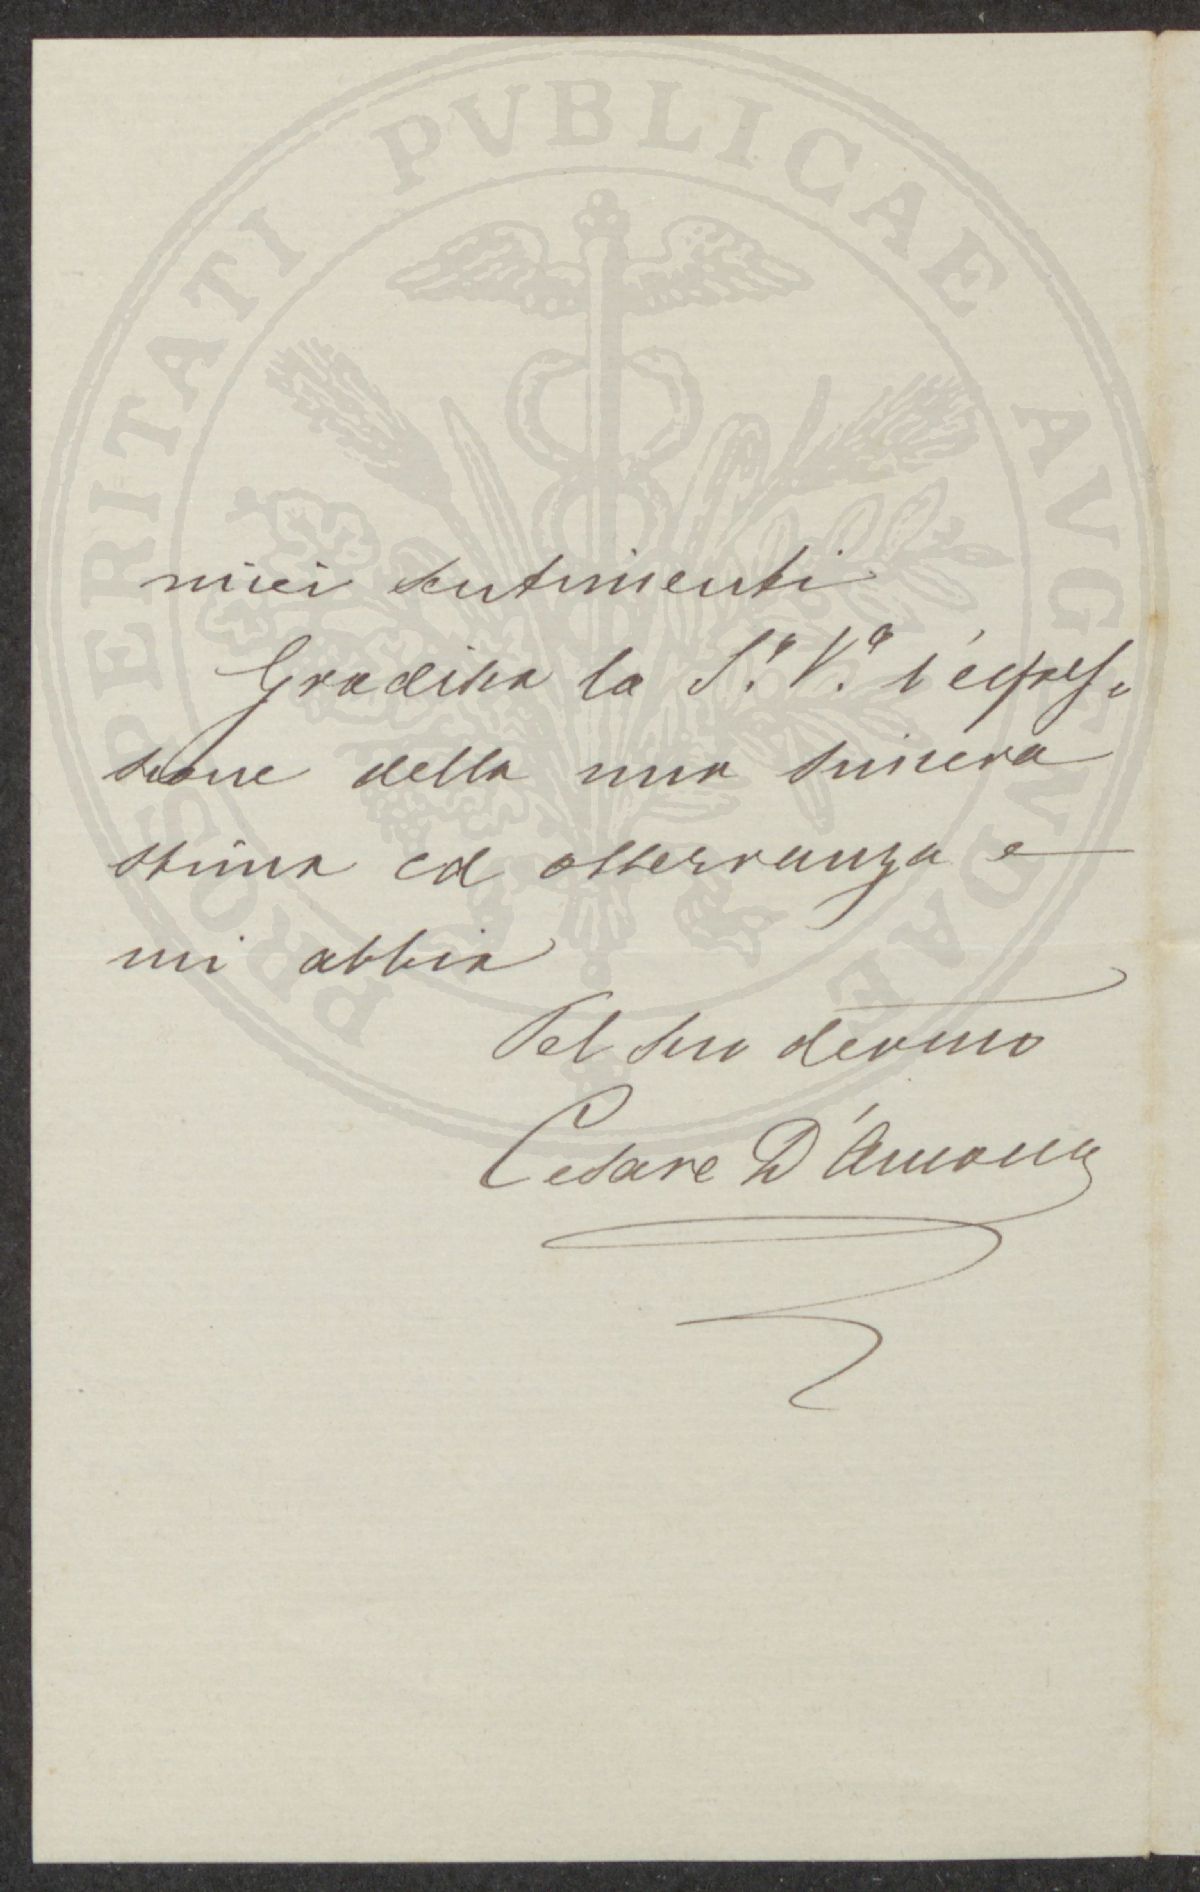 PROSPERITATI PVBLICAE AVGENDAE
miei sentimenti
Gradisca la S.ª V.ª l'espres-
sione della mia sincera
stima ed osservanza e
mi abbia
Pel suo devmo
Cesare D'Ancona